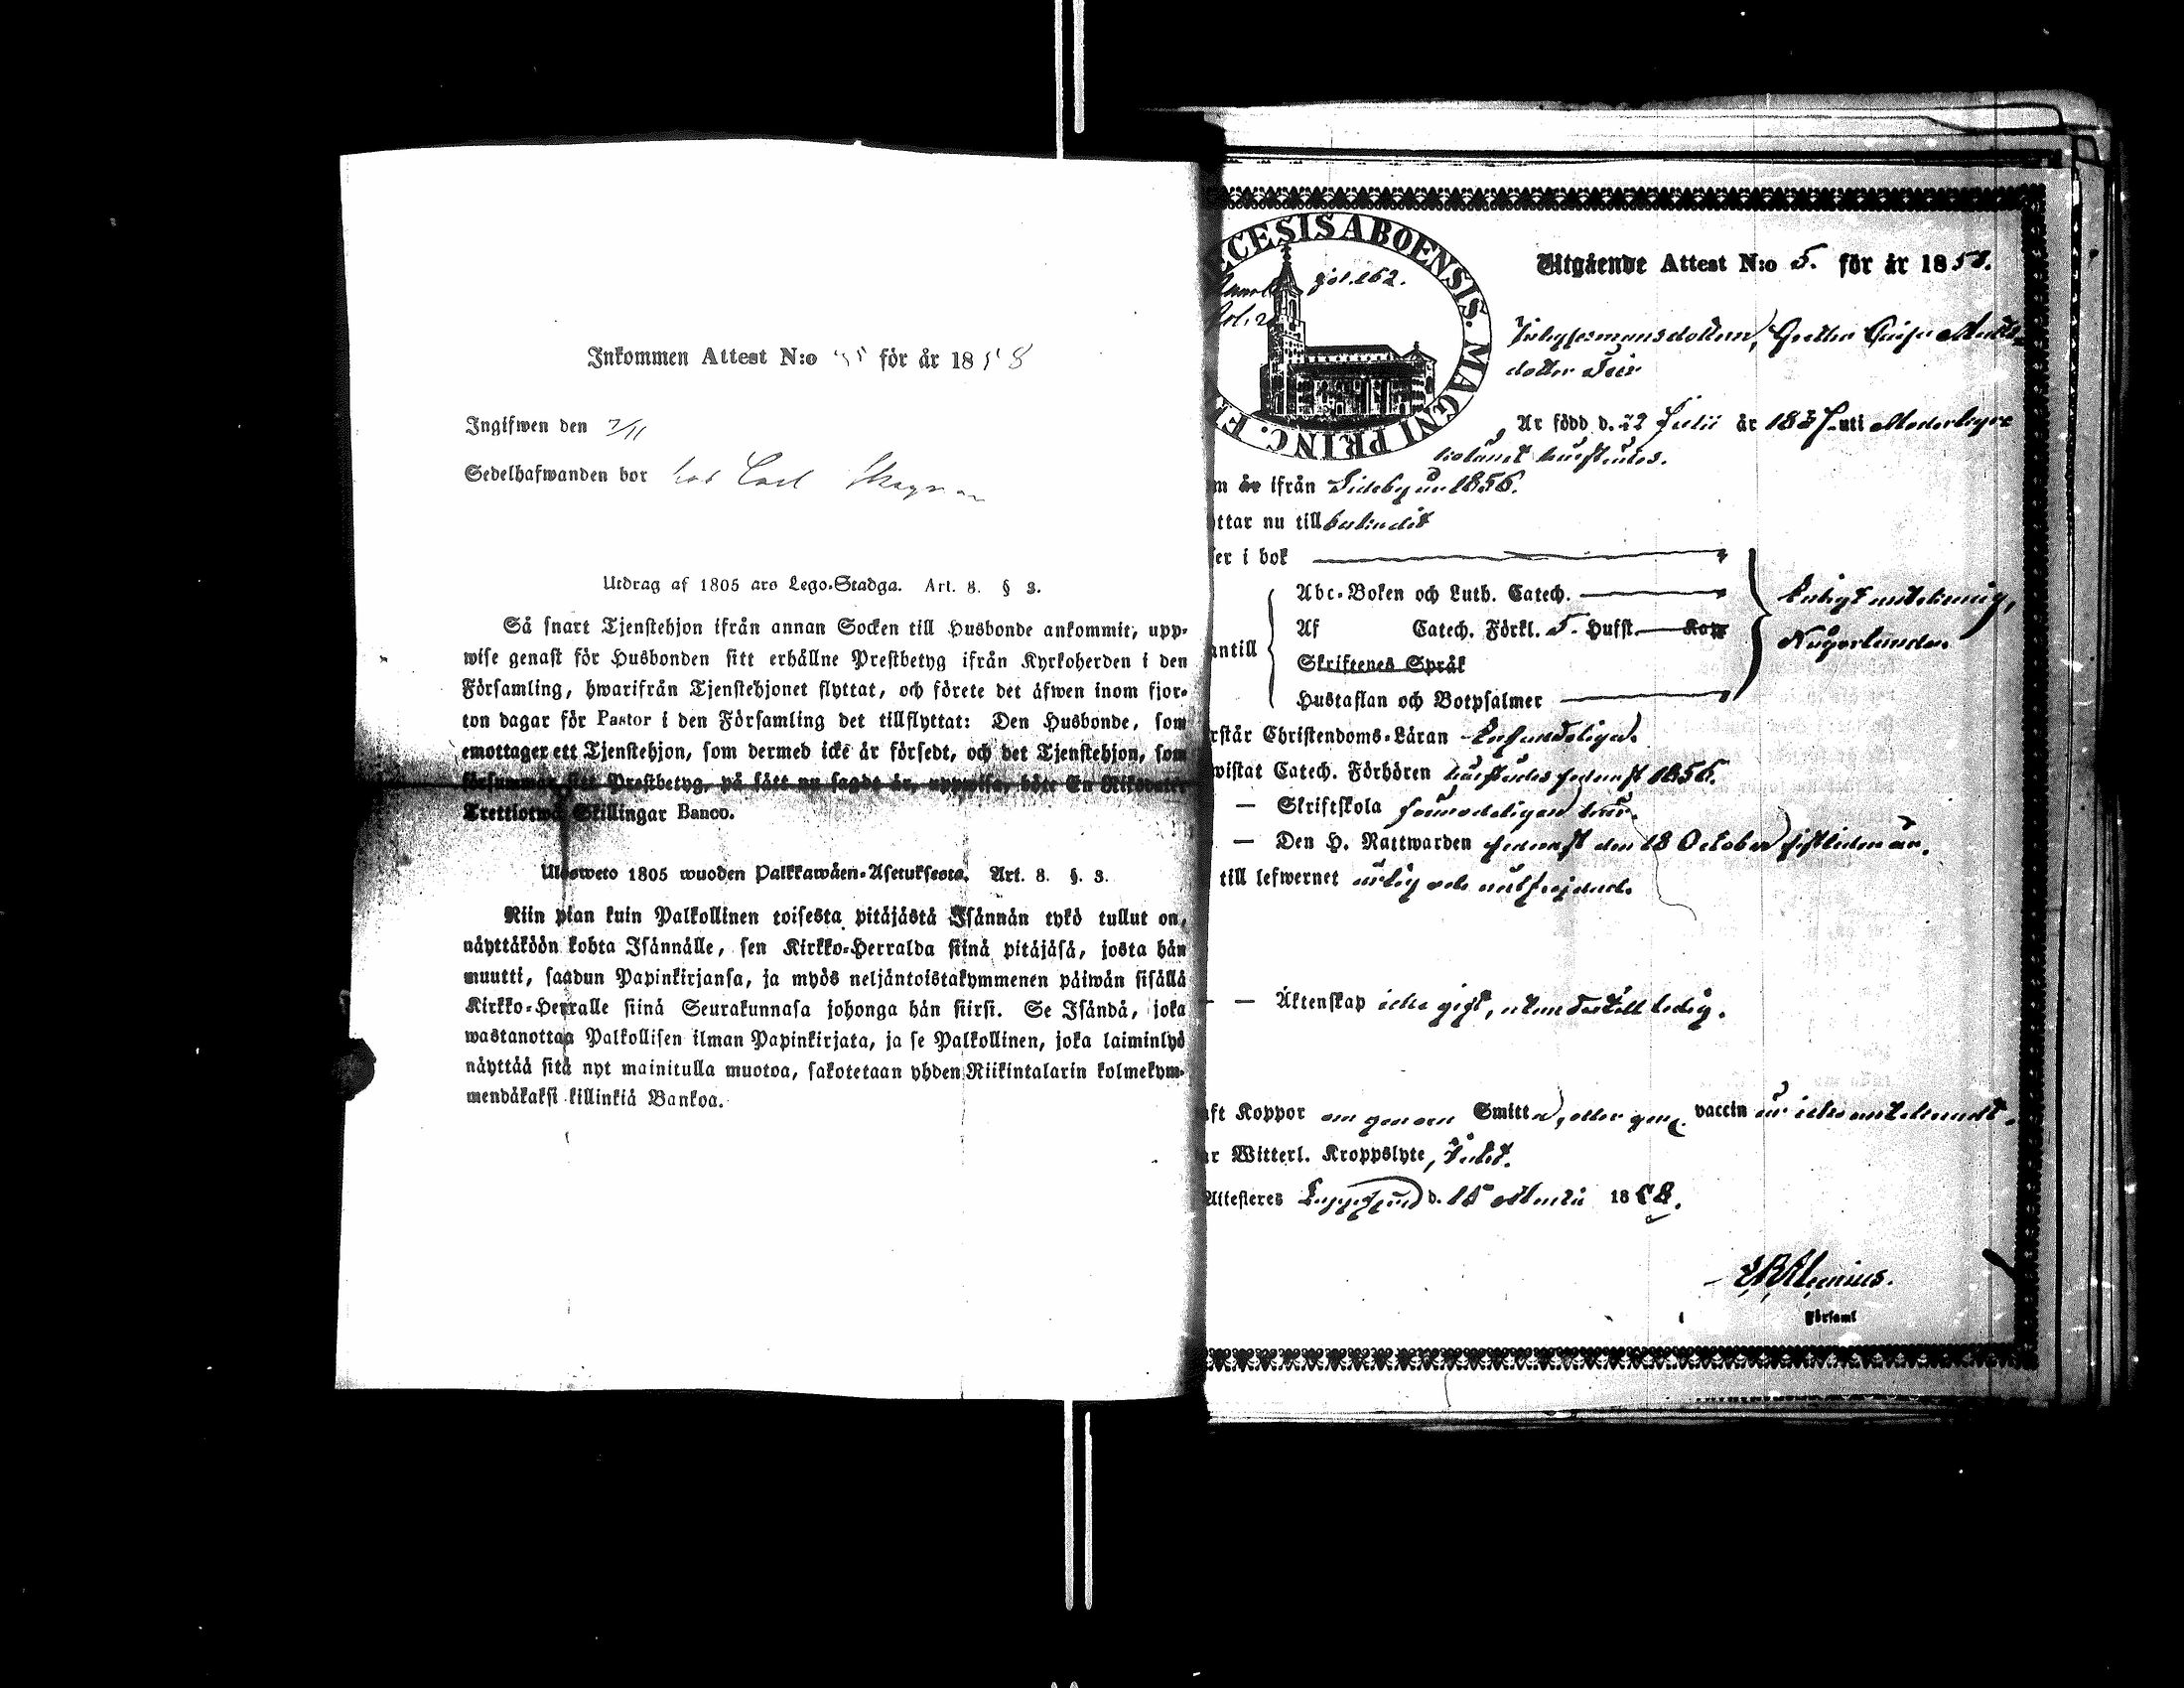 Inkommen Attest N:o för år 1858
Ingifwen den 7/11
Sedelhafwanden bor hos Carl
Utdrag af 1805 ars Lego-Stadga. Art. 8. § 3.
Så snart Tjenstehjon ifrån annan Socken till Husbonde ankommit, upp-
wise genast för Husbonden sitt erhållne Prestbetyg ifrån Kyrkoherden i den
Församling, hwarifrån Tjenstehjonet flyttat, och förete det äfwen inom fjor-
ton dagar för Pastor i den Församling det tillflyttat: Den Husbonde, som
emottager ett Tjenstehjon, som dermed icke är försedt, och det Tjenstehjon, som
försummar sitt Prestbetyg, på sätt nu sagdt är, uppwisa, böte En Riksdaler
Trettiotwå Skillingar Banco.
Ulosweto 1805 wuoden Palkkawäen-Asetuksesta. Art. 8. §. 3.
Niin pian kuin Palkollinen toisesta pitäjästä Isännän tykö tullut on,
näyttäköön kohta Isännälle, sen Kirkko-Herralda siinä pitäjäsä, josta hän
muutti, saadun Papinkirjansa, ja myös neljäntoistakymmenen päiwän sisällä
Kirkko-Herralle siinä Seurakunnasa johonga hän siirsi. Se Isändä, joka
wastanottaa Palkollisen ilman Papinkirjata, ja se Palkollinen, joka laiminlyö
näyttää sitä nyt mainitulla muotoa, sakotetaan yhden Riikintalarin kolmekym-
mendäkaksi killinkiä Bankoa.
ECESIS ABOENSIS. MAGNI PRINC.
fol. 162.
Utgående Attest N:o 5. för år 1858.
Gretha Caisa
dotter
Är född d. 22 Julii år uti
m år ifrån Sideby år 1856.
ttar nu till
ser i bok
Abc-Boken och Luth. Catech.
Af Catech. Förkl. 5. Hufst. Kap
antill
Skriftenes Språk
Hustaflan och Botpsalmer
Någorlunda.
rstår Christendoms-Läran
wistat Catech. Förhören härstädes sednast 1856.
— Skriftskola
— Den H. Nattwarden sednast den 18 October sistliden år.
till lefwernet ärlig och
— — Äktenskap icke gift, utan dertill ledig.
aft Koppor om genom Smitta, eller gm vaccin är icke antecknadt.
ar Witterl. Kroppslyte, Intet.
Attesteres Lappfjerd d. 15 Martii 1858.
Församl